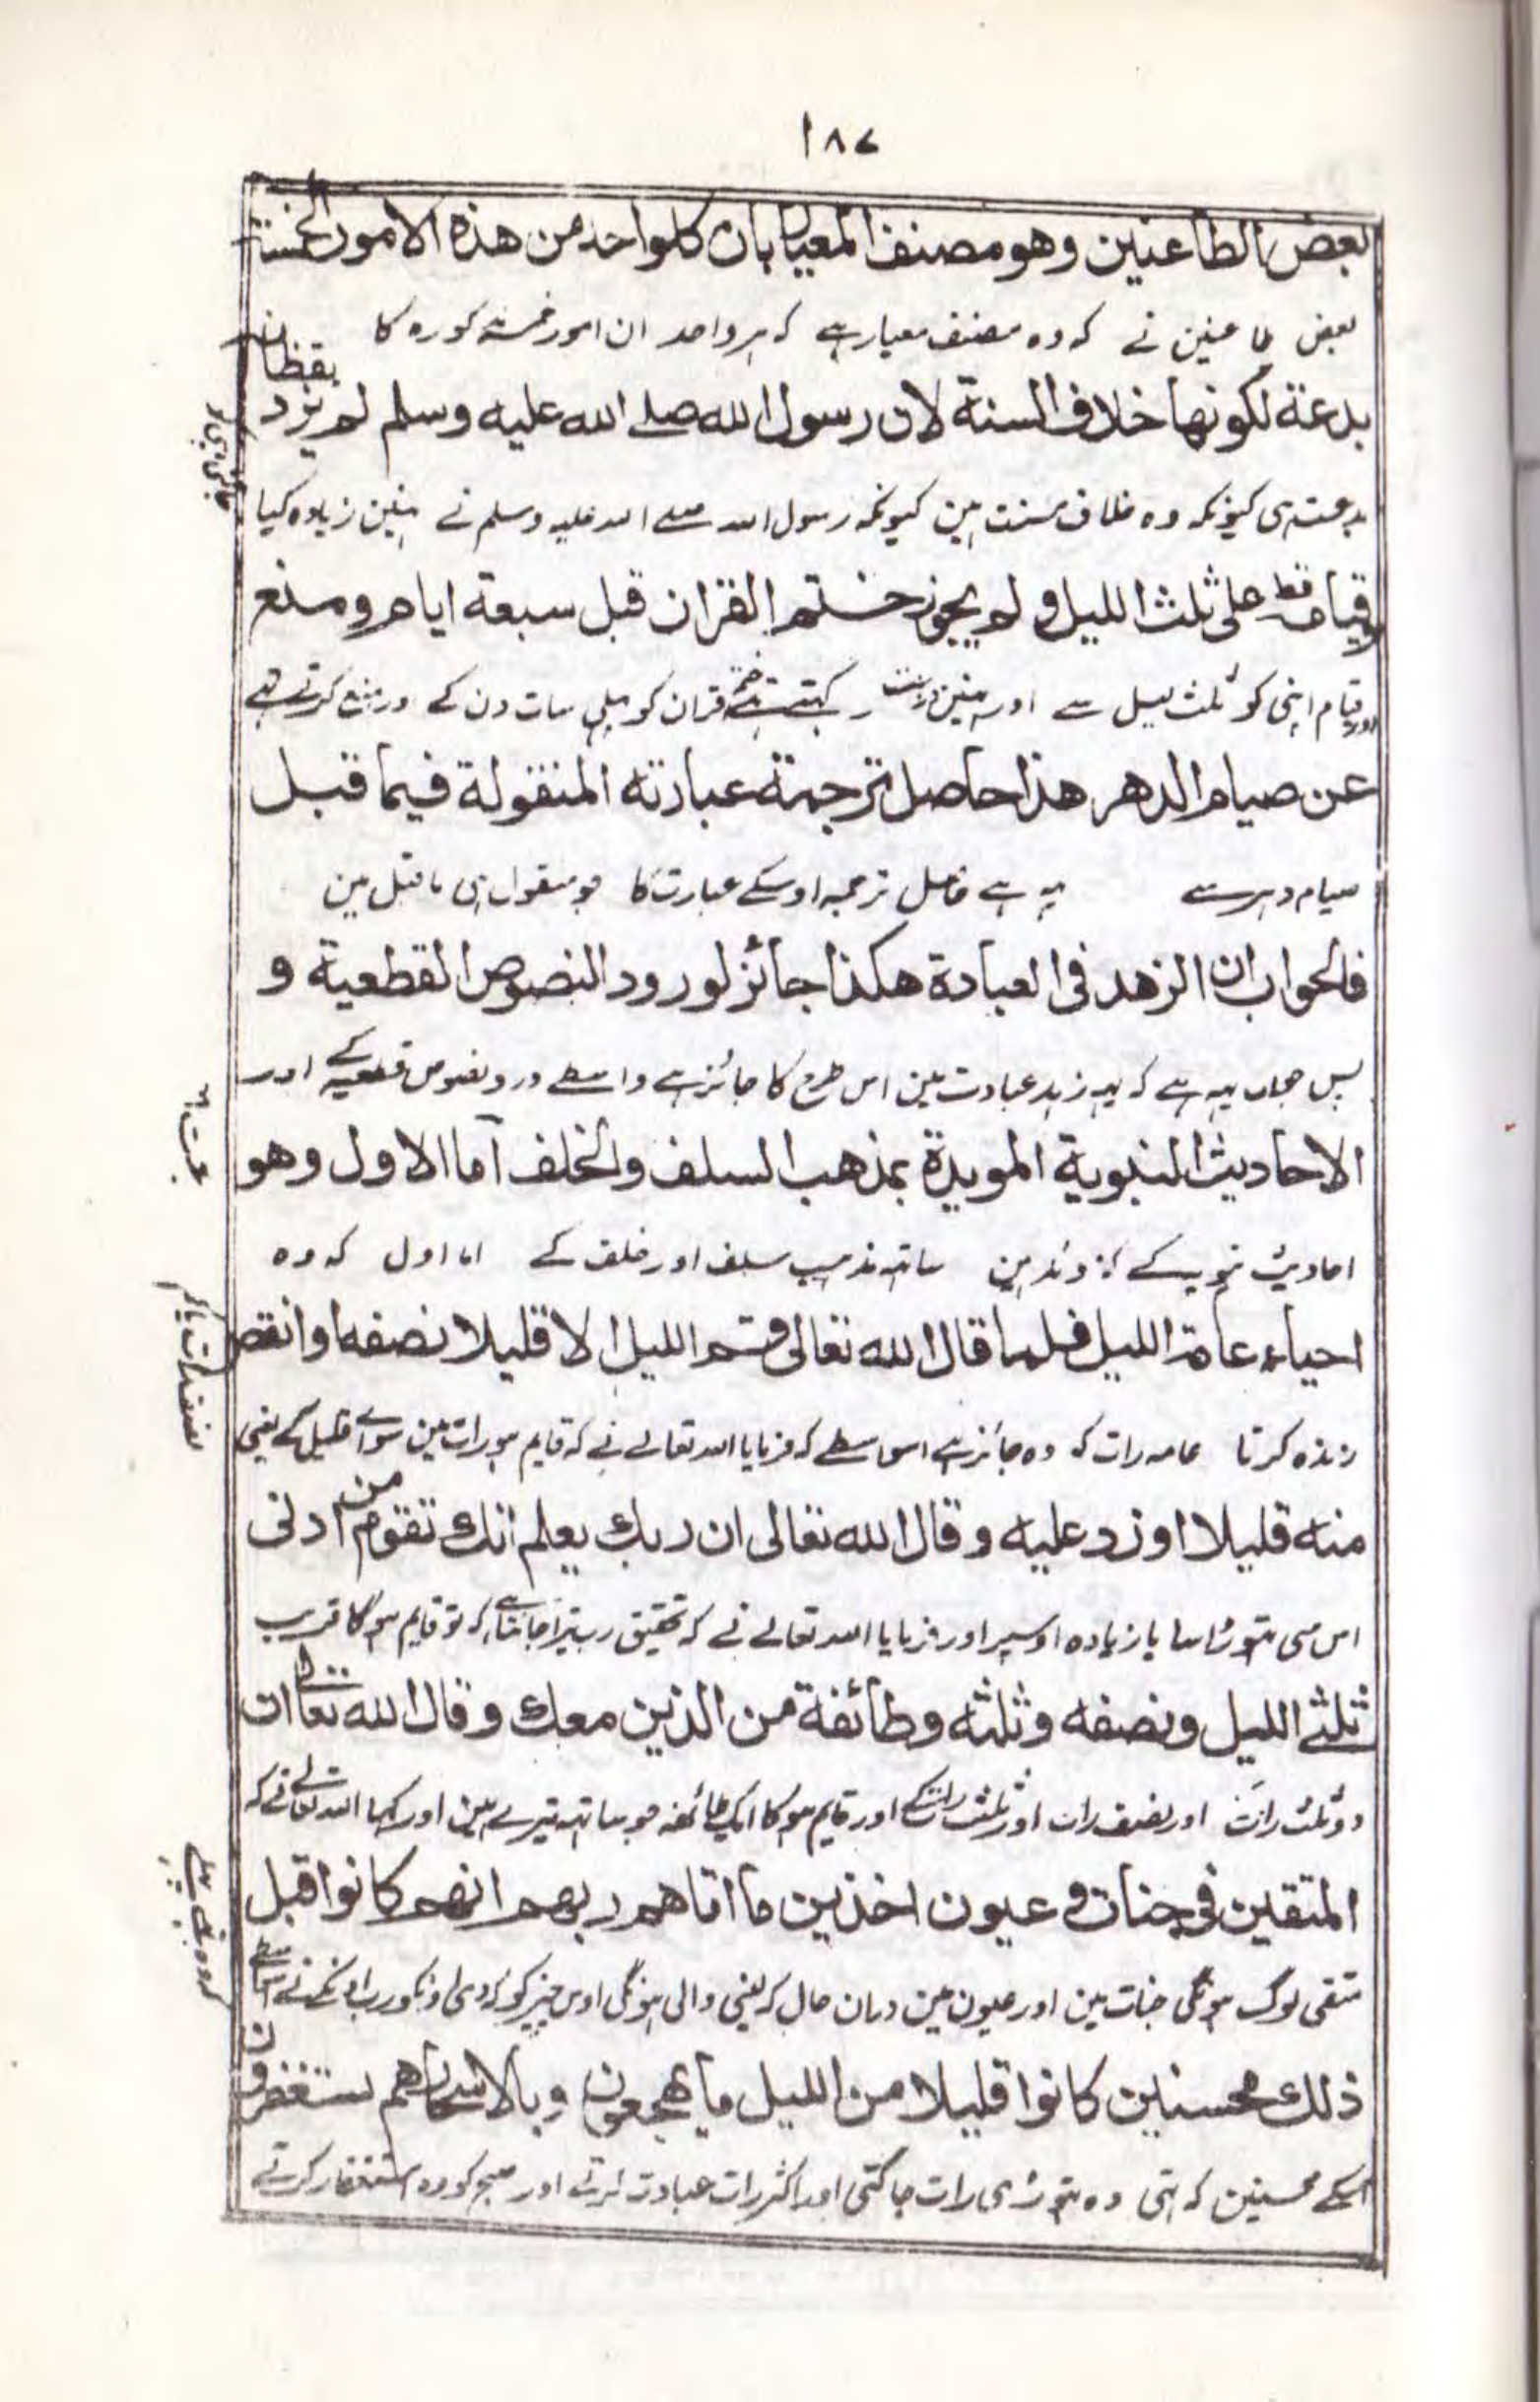 ۱۸۷
بعض الطاعنين وهو مصنف المعيار بان كلواحد من هذه الامور الخمسة
بعض طاعنین نے کہ وہ مصنف معیار ہے کہ ہر واحد ان امور خمسہ کا
بدعة لكونها خلاف السنة لان رسول الله صلے الله عليه وسلم لم يزد يقظان
بدعت ہی کیونکہ وہ خلاف سنت ہین کیونکہ رسول اللہ صلے اللہ علیہ وسلم نے نہین زیادہ کیا
وقيام قط على ثلث الليل و لم يجوز ختم القران قبل سبعة ايام ومنع
اور قیام اپنی کو ثلث لیل سے اور نہین درست کہتے تہے ختم قران کو پہلی سات دن کے اور منع کرتے تہے
عن صيام الدهر هذا حاصل ترجمة عبارته المنقولة فيما قبل
صیام دہر سے یہ ہے حاصل ترجمہ اوسکے عبارت کا جو منقول ہی ما قبل مین
فالجواب ان الزهد فى العبادة هكذا جائز لورود النصوص القطعية و
پس جواب یہہ ہے کہ یہہ زہد عبادت مین اس طرح کا جائز ہے واسطے ورود نصوص قطعیہ کے اور
الاحاديث النبوية المويدة بمذهب السلف والخلف اما الاول وهو
احادیث نبویہ کے ساتہ مذہب سلف اور خلف کے اما اول کہ وہ
احياء عامة الليل فلما قال الله تعالى قم الليل الا قليلا نصفه او انقص
زندہ کرنا عامہ رات کو وہ جائز ہے اس واسطے کہ فرمایا اللہ تعالے نے کہ قایم ہو رات مین سواے قلیل کے یعنی
منه قليلا او زد عليه وقال الله تعالى ان ربك يعلم انك تقوم من ادنى
اس سی تہوڑا سا یا زیادہ اوسپر اور فرمایا اللہ تعالے نے کہ تحقیق رب تیرا جانتا ہے کہ تو قایم ہو گا قریب
ثلثے الليل ونصفه وثلثه وطائفة من الذين معك وقال الله تعالى ان
دو ثلث رات اور نصف رات اور ثلث رات کے اور قایم ہو گا ایک طائفہ جو ساتہ تیرے ہین اور کہا اللہ تعالے نے کہ
المتقين فى جنات و عيون اخذين ما اتاهم ربهم انهم كانوا قبل
متقی لوگ ہونگی جنات مین اور عیون مین درآن حال کہ لینی والی ہونگی اوس چیز کو کہ دی اونکو رب اونکے نے
ذلك محسنين كانوا قليلا من الليل ما يهجعون وبالاسحار هم يستغفرون
اسکے محسنین کہ تہی وہ تہوڑی رات جاگتی اور اکثر رات عبادت کرتے اور صبح کو وہ استغفار کرتے
نصف رات یا کم